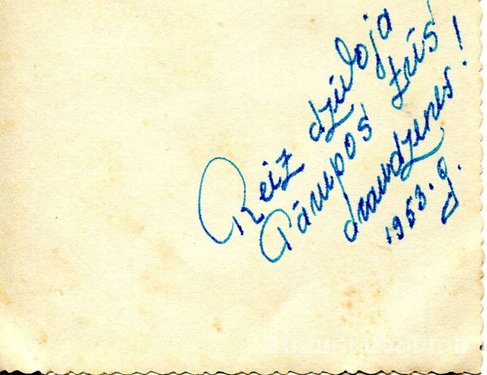 Reiz dzīvoja
Pāmpos trīs
draudzenes!
1953. g.